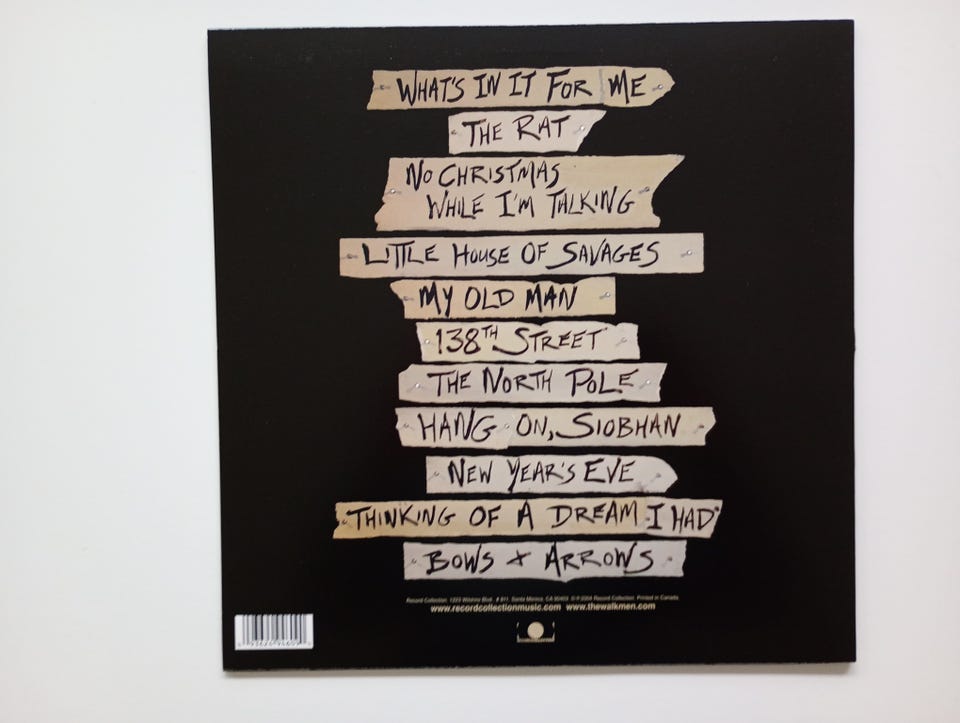 WHAT'S IN IT FOR ME
THE RAT
NO CHRISTMAS
WHILE I'M TALKING
LITTLE HOUSE OF SAVAGES
MY OLD MAN
138TH STREET
THE NORTH POLE
HANG ON, SIOBHAN
NEW YEAR'S EVE
THINKING OF A DREAM I HAD
BOWS + ARROWS
Record Collection. 1223 Wilshire Blvd. # 811, Santa Monica, CA 90403 ©℗2004 Record Collection. Printed in Canada.
www.recordcollectionmusic.com www.thewalkmen.com